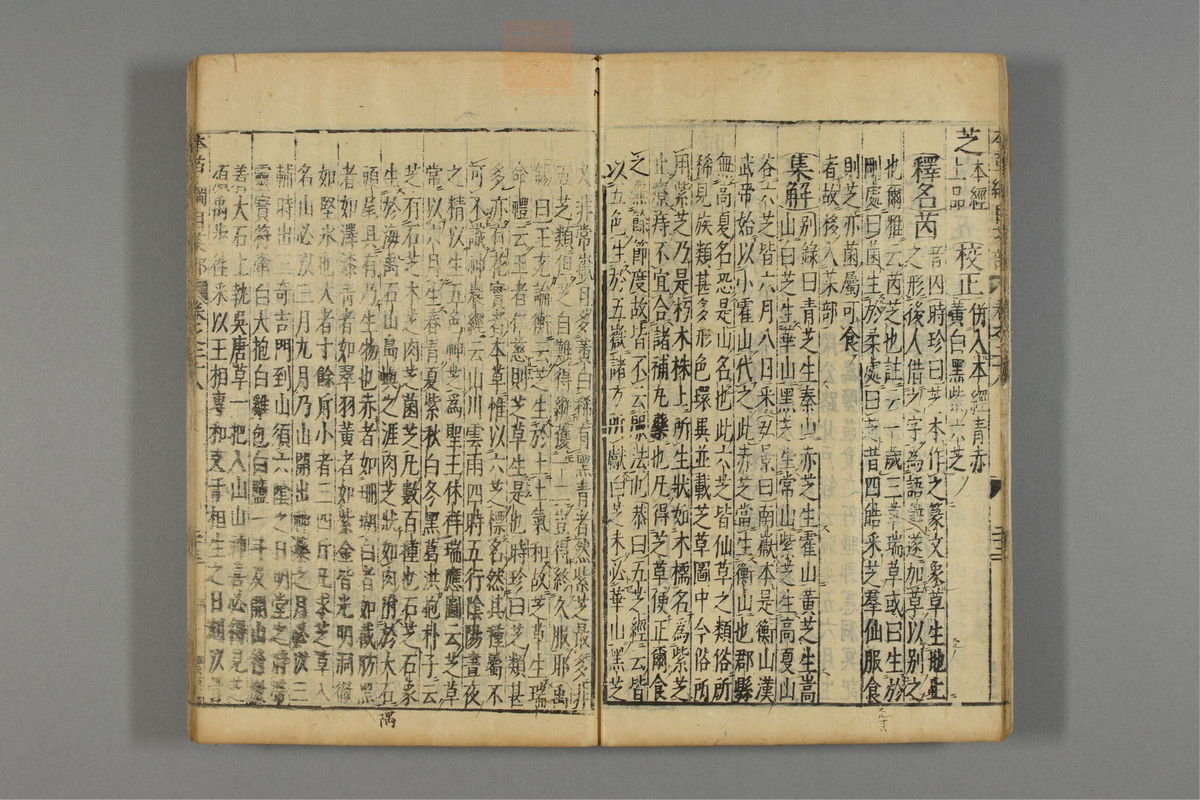 芝 本經上品 校正 併入本經青赤黃白黑紫六芝
釋名 茵 音囚時珍曰芝本作之篆文象草生地上
之形後人借之字為語辭遂加草以別之
也爾雅云茵芝也註云一歲三華瑞草或曰生於
剛處曰菌生於柔處曰芝昔四皓采芝羣仙服食
則芝亦菌屬可食
者故移入菜部
集解 別錄曰青芝生泰山赤芝生霍山黃芝生嵩
山白芝生華山黑芝生常山紫芝生高夏山
谷六芝皆六月八日采 弘景曰南嶽本是衡山漢
武帝始以小霍山代之此赤芝當生衡山也郡縣
無高夏名恐是山名也此六芝皆仙草之類俗所
稀見族類甚多形色瓌異並載芝草圖中今俗所
用紫芝乃是朽木株上所生狀如木檽名為紫芝
止療痔不宜合諸補丸藥也凡得芝草便正爾食
之無餘節度故皆不云服法也恭曰五芝經云皆
以五色生於五嶽諸方所獻白芝未必華山黑芝
又非常嶽且多黃白稀有黑青者然紫芝最多非
五芝類但芝自難得縱獲一二豈得終久服耶禹
錫曰王充論衡云芝生於土土氣和故芝草生瑞
命禮云王者仁慈則芝草生是也時珍曰芝類甚
多亦有花實者本草惟以六芝標名然其種屬不
可不識神農經云山川雲雨四時五行陰陽晝夜
之精以生五色神芝為聖王休祥瑞應圖云芝草
常以六月生春青夏紫秋白冬黑葛洪抱朴子云
芝有石芝木芝肉芝菌芝凡數百種也石芝石象
生於海隅石山島嶼之涯肉芝狀如肉附於大石
頭尾具有乃生物也赤者如珊瑚白者如截肪黑
者如澤漆青者如翠羽黃者如紫金皆光明洞徹
如堅冰也大者十餘斤小者三四斤凡求芝草入
名山必以三月九月乃山開出神藥之月必以三
輔時出三奇吉門到山須六陰之日明堂之時帶
靈寶符牽白犬抱白雞包白鹽一斗及開山符檄
著大石上執吳唐草一把入山山神喜必得見芝
須禹步往采以王相專和支干相生之日刻以
隅